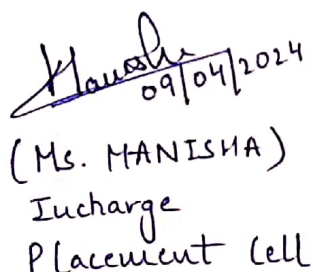 Manisha
09/04/2024
(Ms. MANISHA)
Incharge
Placement Cell